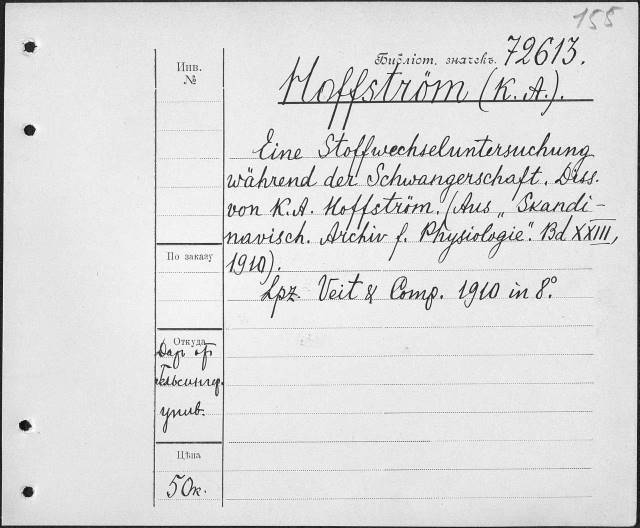 155
Библіот. значекъ. 72613.
Hoffström (K. A.).
Eine Stoffwechseluntersuchung
während der Schwangerschaft. Diss.
von K. A. Hoffström. (Aus „Skandi-
navisch. Archiv f. Physiologie". Bd XXIII,
1910).
Lpz. Veit & Comp. 1910 in 8°.
Инв.
№
По заказу
Откуда
Дар от
Гельсингф.
унив.
Цѣна
50к.